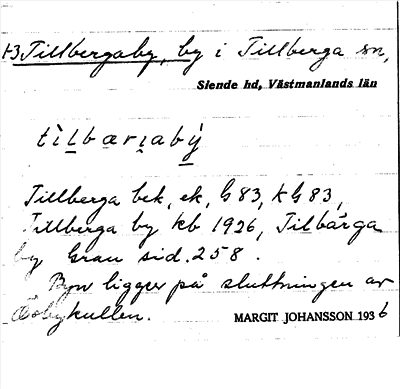 t3 Tillbergaby, by i Tillberga sn,
Siende hd, Västmanlands län
tìlbæriabý
Tillberga bek, ek, G83, kG83,
Tillberga by kb 1926, Tilbärga
by Grau sid. 258.
Byn ligger på sluttningen av
Åsbykullen.
MARGIT JOHANSSON 1936